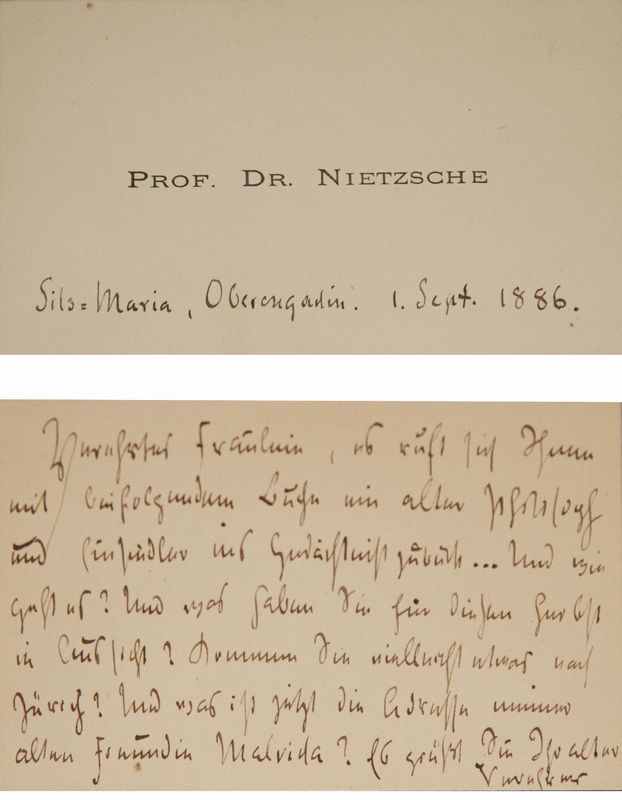 PROF. DR. NIETZSCHE
Sils=Maria, Oberengadin. 1. Sept. 1886.
Verehrtes Fräulein, es ruft sich Ihnen
mit beifolgendem Buche ein alter Philosoph
und Einsiedler ins Gedächtniß zurück... Und wie
geht es? Und was haben Sie für diesen Herbst
in Aussicht? Kommen Sie vielleicht etwas nach
Zürich? Und was ist jetzt die Adresse meiner
alten Freundin Malvida? Es grüßt Sie Ihr alter
Verehrer